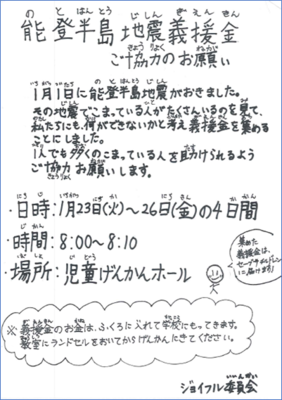 能登半島地震義援金
ご協力のお願い
1月1日に能登半島地震がおきました。
その地震でこまっている人がたくさんいるのを見て、
私たちにも、何ができないかと考え義援金を集める
ことにしました。
1人でも多くのこまっている人を助けられるよう
ご協力お願いします。
・日時：1月23日(火)～26日(金)の4日間
・時間：8:00～8:10
・場所：児童げんかんホール
集めた
義援金は、
セーブ・ザ・チルドレン
に届けます!
※義援金のお金は、ふくろに入れて学校にもってきます。
教室にランドセルをおいてからげんかんにきてください。
ジョイフル委員会